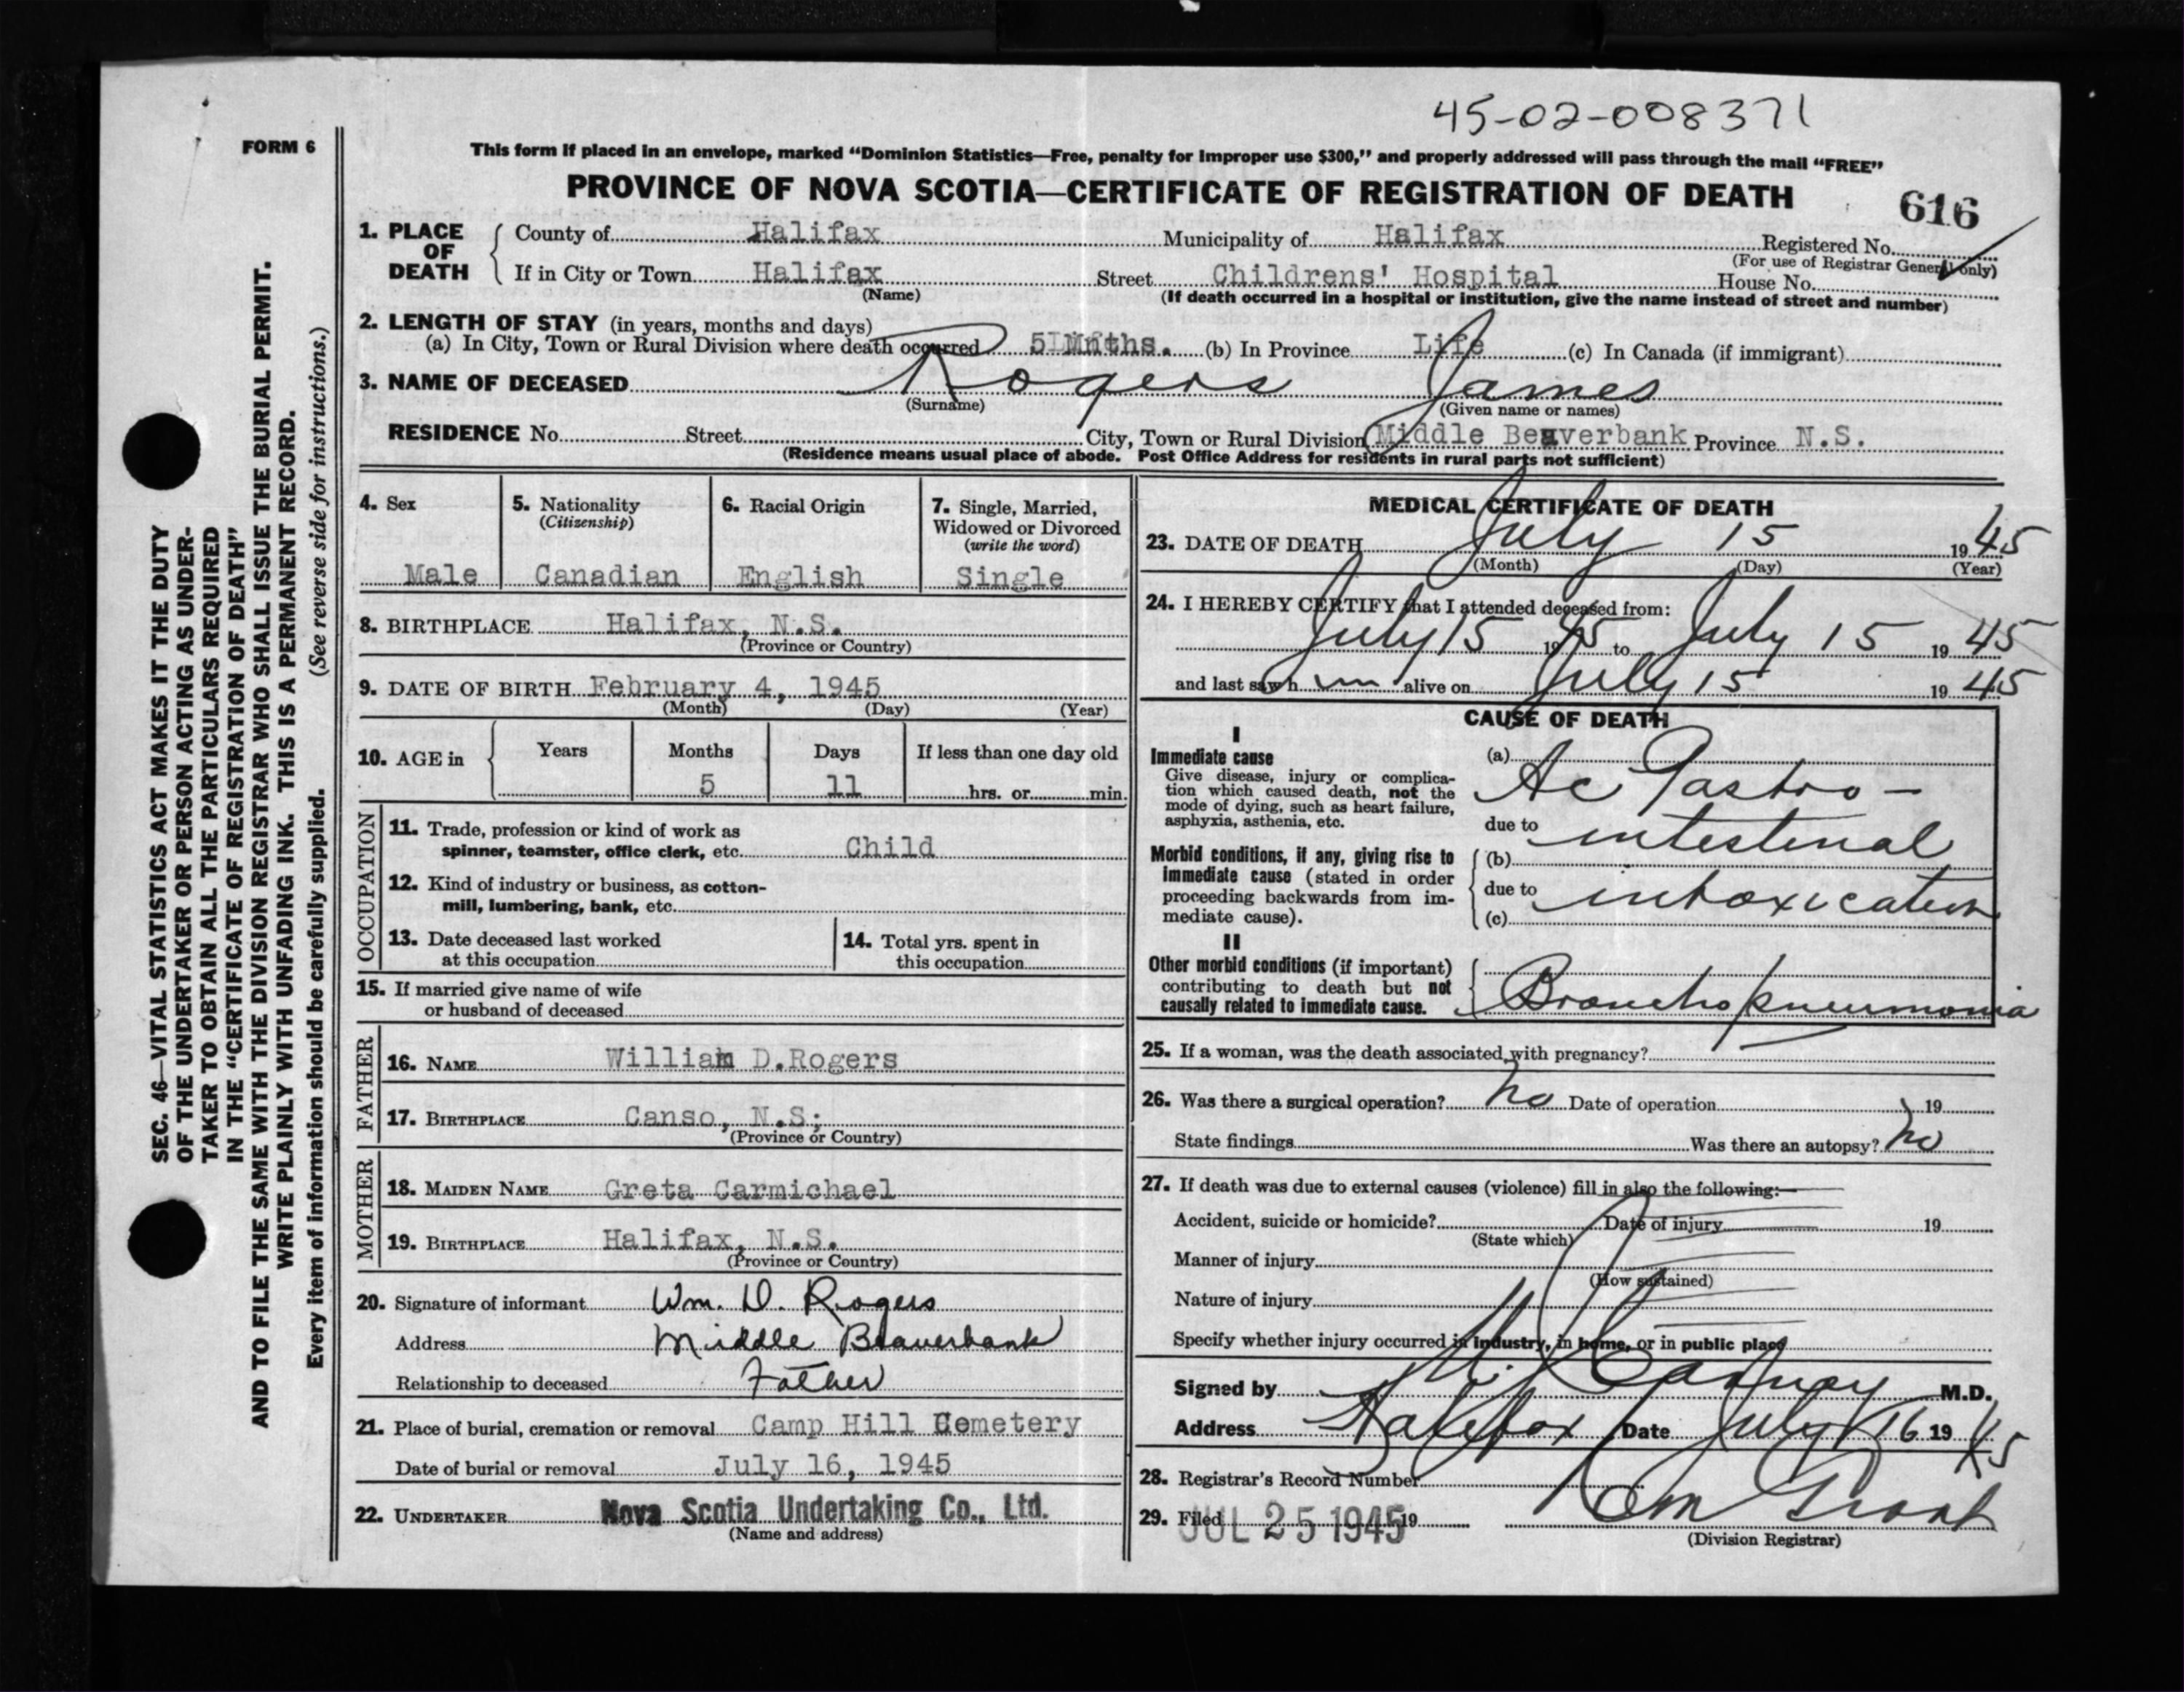 45-02-008371
FORM 6
This form if placed in an envelope, marked “Dominion Statistics—Free, penalty for improper use $300,” and properly addressed will pass through the mail “FREE”
PROVINCE OF NOVA SCOTIA—CERTIFICATE OF REGISTRATION OF DEATH
616
1. PLACE OF DEATH
County of Halifax Municipality of Halifax Registered No.
(For use of Registrar General only)
If in City or Town Halifax Street Childrens' Hospital House No.
(Name) (If death occurred in a hospital or institution, give the name instead of street and number)
2. LENGTH OF STAY (in years, months and days)
(a) In City, Town or Rural Division where death occurred 5 Mnths. (b) In Province Life (c) In Canada (if immigrant)
3. NAME OF DECEASED Rogers James
(Surname) (Given name or names)
RESIDENCE No. Street City, Town or Rural Division Middle Beaverbank Province N.S.
(Residence means usual place of abode. Post Office Address for residents in rural parts not sufficient)
4. Sex
Male
5. Nationality
(Citizenship)
Canadian
6. Racial Origin
English
7. Single, Married,
Widowed or Divorced
(write the word)
Single
8. BIRTHPLACE Halifax, N.S.
(Province or Country)
9. DATE OF BIRTH February 4, 1945
(Month) (Day) (Year)
10. AGE in
Years Months Days If less than one day old
5 11 hrs. or min.
OCCUPATION
11. Trade, profession or kind of work as
spinner, teamster, office clerk, etc. Child
12. Kind of industry or business, as cotton-
mill, lumbering, bank, etc.
13. Date deceased last worked
at this occupation
14. Total yrs. spent in
this occupation
15. If married give name of wife
or husband of deceased
FATHER
16. NAME William D.Rogers
17. BIRTHPLACE Canso, N.S;
(Province or Country)
MOTHER
18. MAIDEN NAME Greta Carmichael
19. BIRTHPLACE Halifax, N.S.
(Province or Country)
20. Signature of informant Wm. D. Rogers
Address Middle Beaverbank
Relationship to deceased Father
21. Place of burial, cremation or removal Camp Hill Cemetery
Date of burial or removal July 16, 1945
22. UNDERTAKER Nova Scotia Undertaking Co., Ltd.
(Name and address)
MEDICAL CERTIFICATE OF DEATH
23. DATE OF DEATH July 15 1945
(Month) (Day) (Year)
24. I HEREBY CERTIFY that I attended deceased from:
July 15 1945 to July 15 1945
and last saw h im alive on July 15 1945
CAUSE OF DEATH
I
Immediate cause
Give disease, injury or complica-
tion which caused death, not the
mode of dying, such as heart failure,
asphyxia, asthenia, etc.
Morbid conditions, if any, giving rise to
immediate cause (stated in order
proceeding backwards from im-
mediate cause).
(a) Ac Gastro-
due to intestinal
(b)
due to intoxication
(c)
II
Other morbid conditions (if important)
contributing to death but not
causally related to immediate cause.
Broncho pneumonia
25. If a woman, was the death associated with pregnancy?
26. Was there a surgical operation? No Date of operation 19
State findings Was there an autopsy? No
27. If death was due to external causes (violence) fill in also the following:—
Accident, suicide or homicide? Date of injury 19
(State which)
Manner of injury
(How sustained)
Nature of injury
Specify whether injury occurred in industry, in home, or in public place
Signed by M.D.
Address Halifax Date July 16 1945
28. Registrar's Record Number
29. Filed JUL 25 1945 19
Grant
(Division Registrar)
SEC. 46—VITAL STATISTICS ACT MAKES IT THE DUTY
OF THE UNDERTAKER OR PERSON ACTING AS UNDER-
TAKER TO OBTAIN ALL THE PARTICULARS REQUIRED
IN THE “CERTIFICATE OF REGISTRATION OF DEATH”
AND TO FILE THE SAME WITH THE DIVISION REGISTRAR WHO SHALL ISSUE THE BURIAL PERMIT.
WRITE PLAINLY WITH UNFADING INK. THIS IS A PERMANENT RECORD.
Every item of information should be carefully supplied. (See reverse side for instructions.)